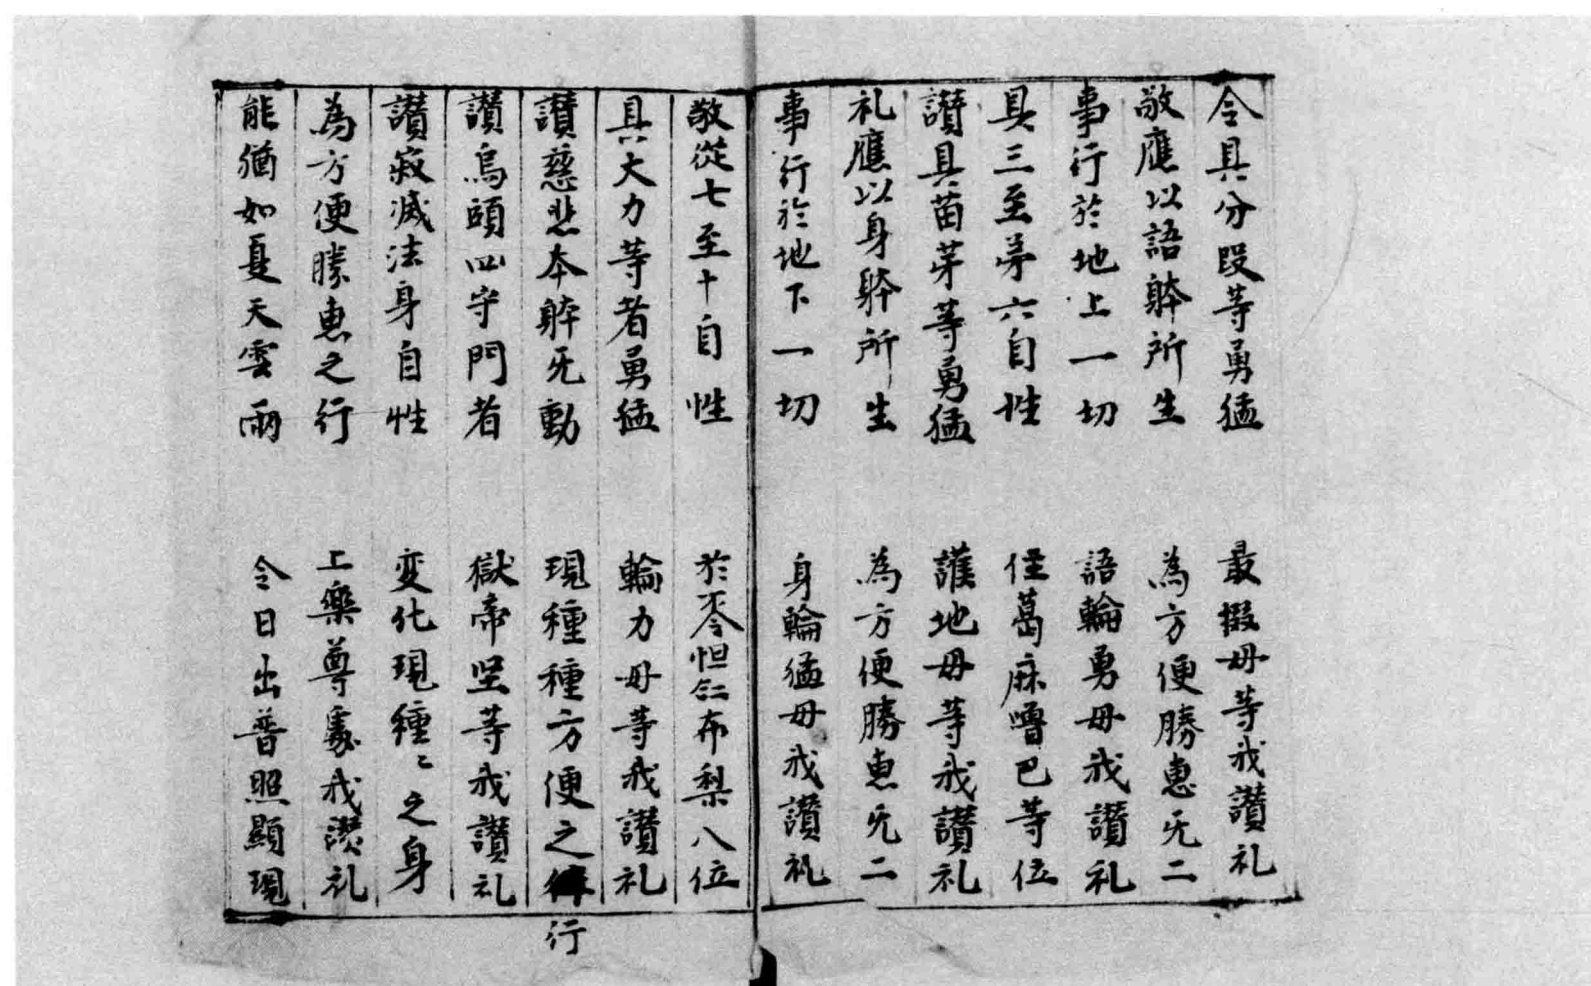 令具分段等勇猛　最掇毋等我讃礼
敬應以語躰所生　為方便勝惠旡二
事行於地上一切　語輪勇毋我讃礼
具三至苐六自性　住葛麻嚕巴等位
讃具苗芽等勇猛　護地毋等我讃礼
礼應以身躰所生　為方便勝惠旡二
事行於地下一切　身輪猛毋我讃礼
敬從七至十自性　於怛布梨八位
具大力等者勇猛　輪力毋等我讃礼
讃慈悲本躰旡動　現種種方便之行
讃烏頭四守門者　獄帝坚等我讃礼
讃寂滅法身自性　变化現種〻之身
為方便勝惠之行　上樂尊處我讃礼
能猶如夏天雲雨　令日出普照顯現